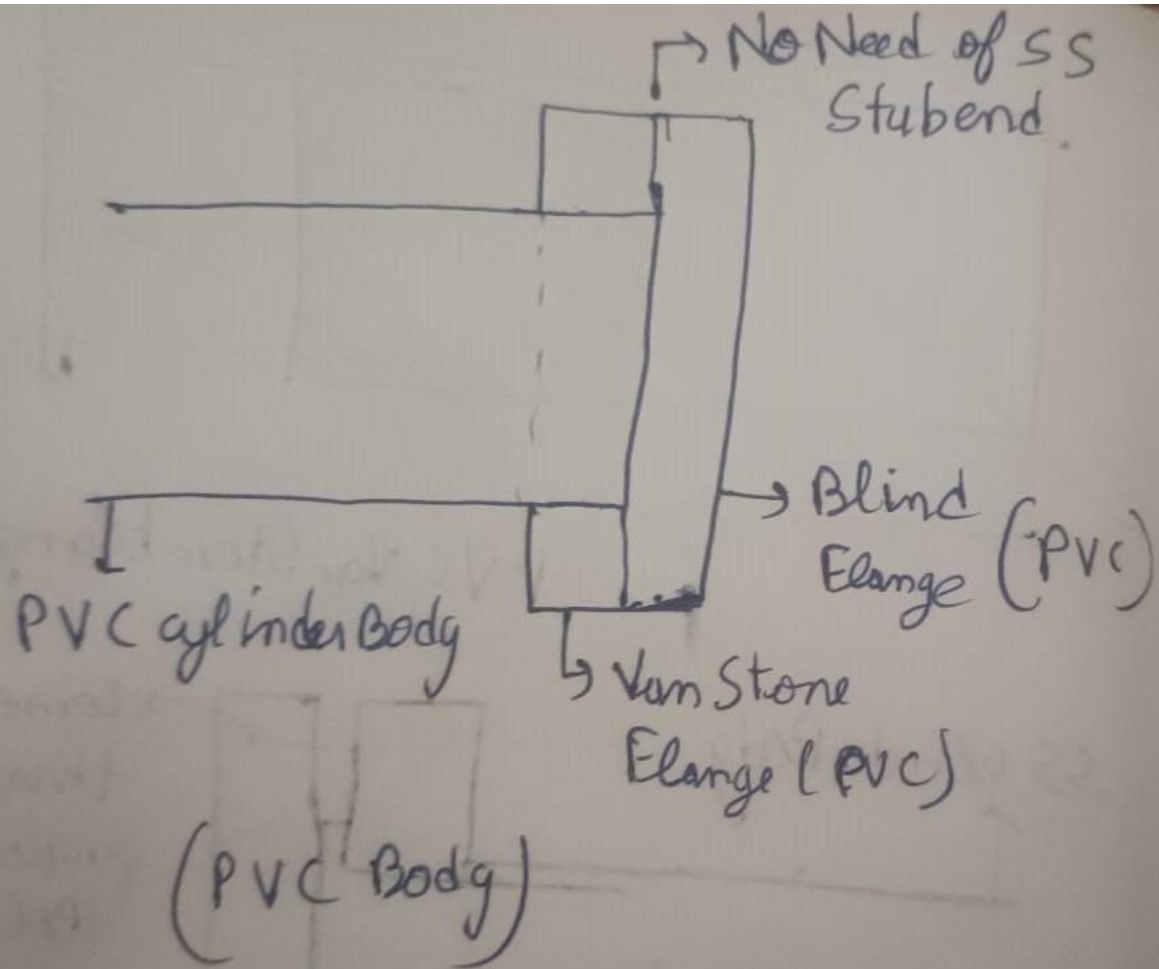 No Need of SS
Stubend.
Blind
Elange (PVC)
PVC cylinder Body
Van Stone
Elange (PVC)
(PVC Body)